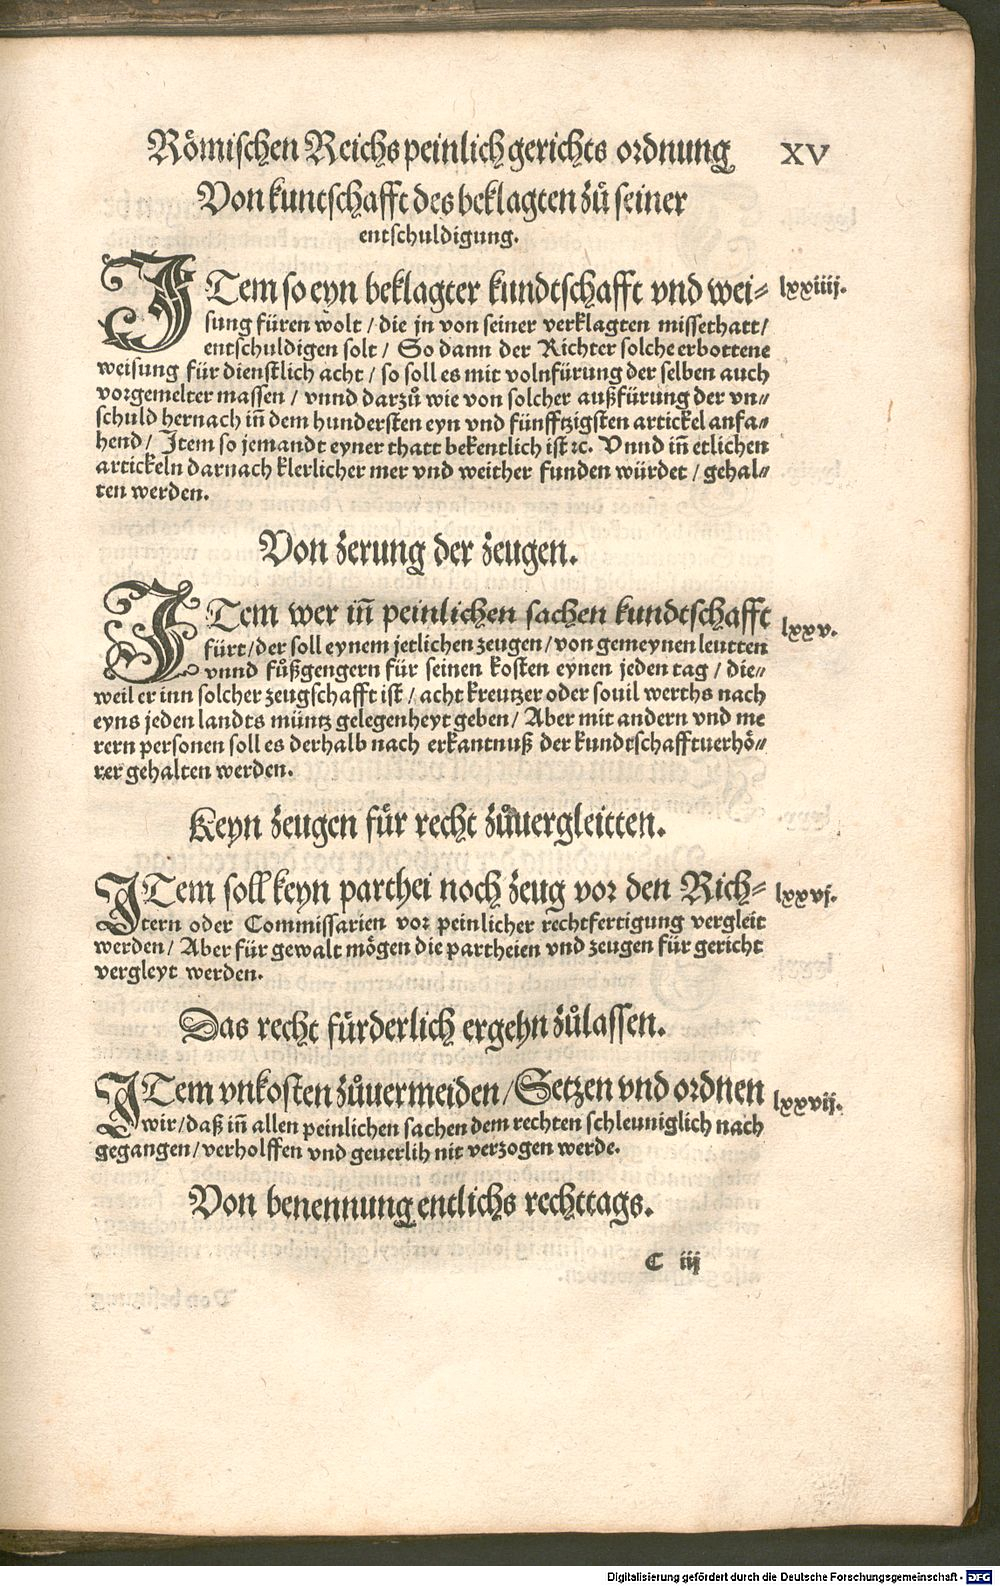 Römischen Reichs peinlich gerichts ordnung XV
Von kuntschafft des beklagten zů seiner
entschuldigung.
ITem so eyn beklagter kundtschafft vnd wei= lxxiiij.
sung füren wolt / die jn von seiner verklagten missethatt /
entschuldigen solt / So dann der Richter solche erbottene
weisung für dienstlich acht / so soll es mit volnfürung der selben auch
vorgemelter massen / vnnd darzů wie von solcher außfürung der vn=
schuld hernach iñ dem hundersten eyn vnd fünfftzigsten artickel anfa=
hend / Item so jemandt eyner thatt bekentlich ist ꝛc. Vnnd iñ etlichen
artickeln darnach klerlicher mer vnd weither funden würdet / gehal=
ten werden.
Von zerung der zeugen.
ITem wer iñ peinlichen sachen kundtschafft lxxv.
fürt / der soll eynem jetlichen zeugen / von gemeynen leutten
vnnd fůßgengern für seinen kosten eynen jeden tag / die=
weil er inn solcher zeugschafft ist / acht kreutzer oder souil werths nach
eyns jeden landts müntz gelegenheyt geben / Aber mit andern vnd me
rern personen soll es derhalb nach erkantnuß der kundtschafftuerhö=
rer gehalten werden.
Keyn zeugen für recht zůuergleitten.
ITem soll keyn parthei noch zeug vor den Rich= lxxvj.
tern oder Commissarien vor peinlicher rechtfertigung vergleit
werden / Aber für gewalt mögen die partheien vnd zeugen für gericht
vergleyt werden.
Das recht fürderlich ergehn zůlassen.
ITem vnkosten zůuermeiden / Setzen vnd ordnen lxxvij.
wir / daß iñ allen peinlichen sachen dem rechten schleuniglich nach
gegangen / verholffen vnd geuerlih nit verzogen werde.
Von benennung entlichs rechttags.
C iij
Digitalisierung gefördert durch die Deutsche Forschungsgemeinschaft - DFG